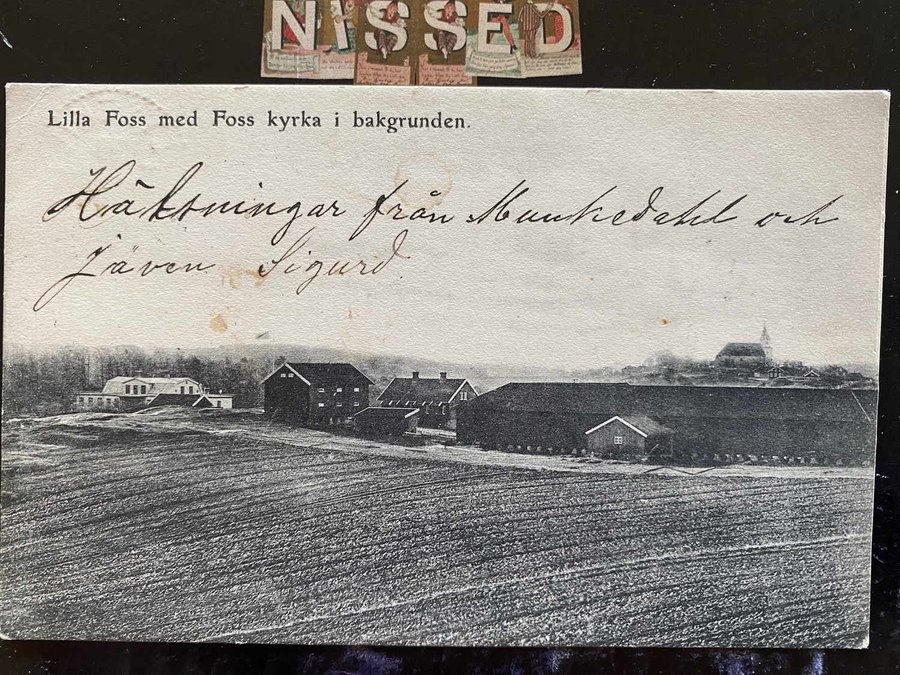 NISSED
Lilla Foss med Foss kyrka i bakgrunden.
Hälsningar från Munkedahl och
jäven Sigurd.